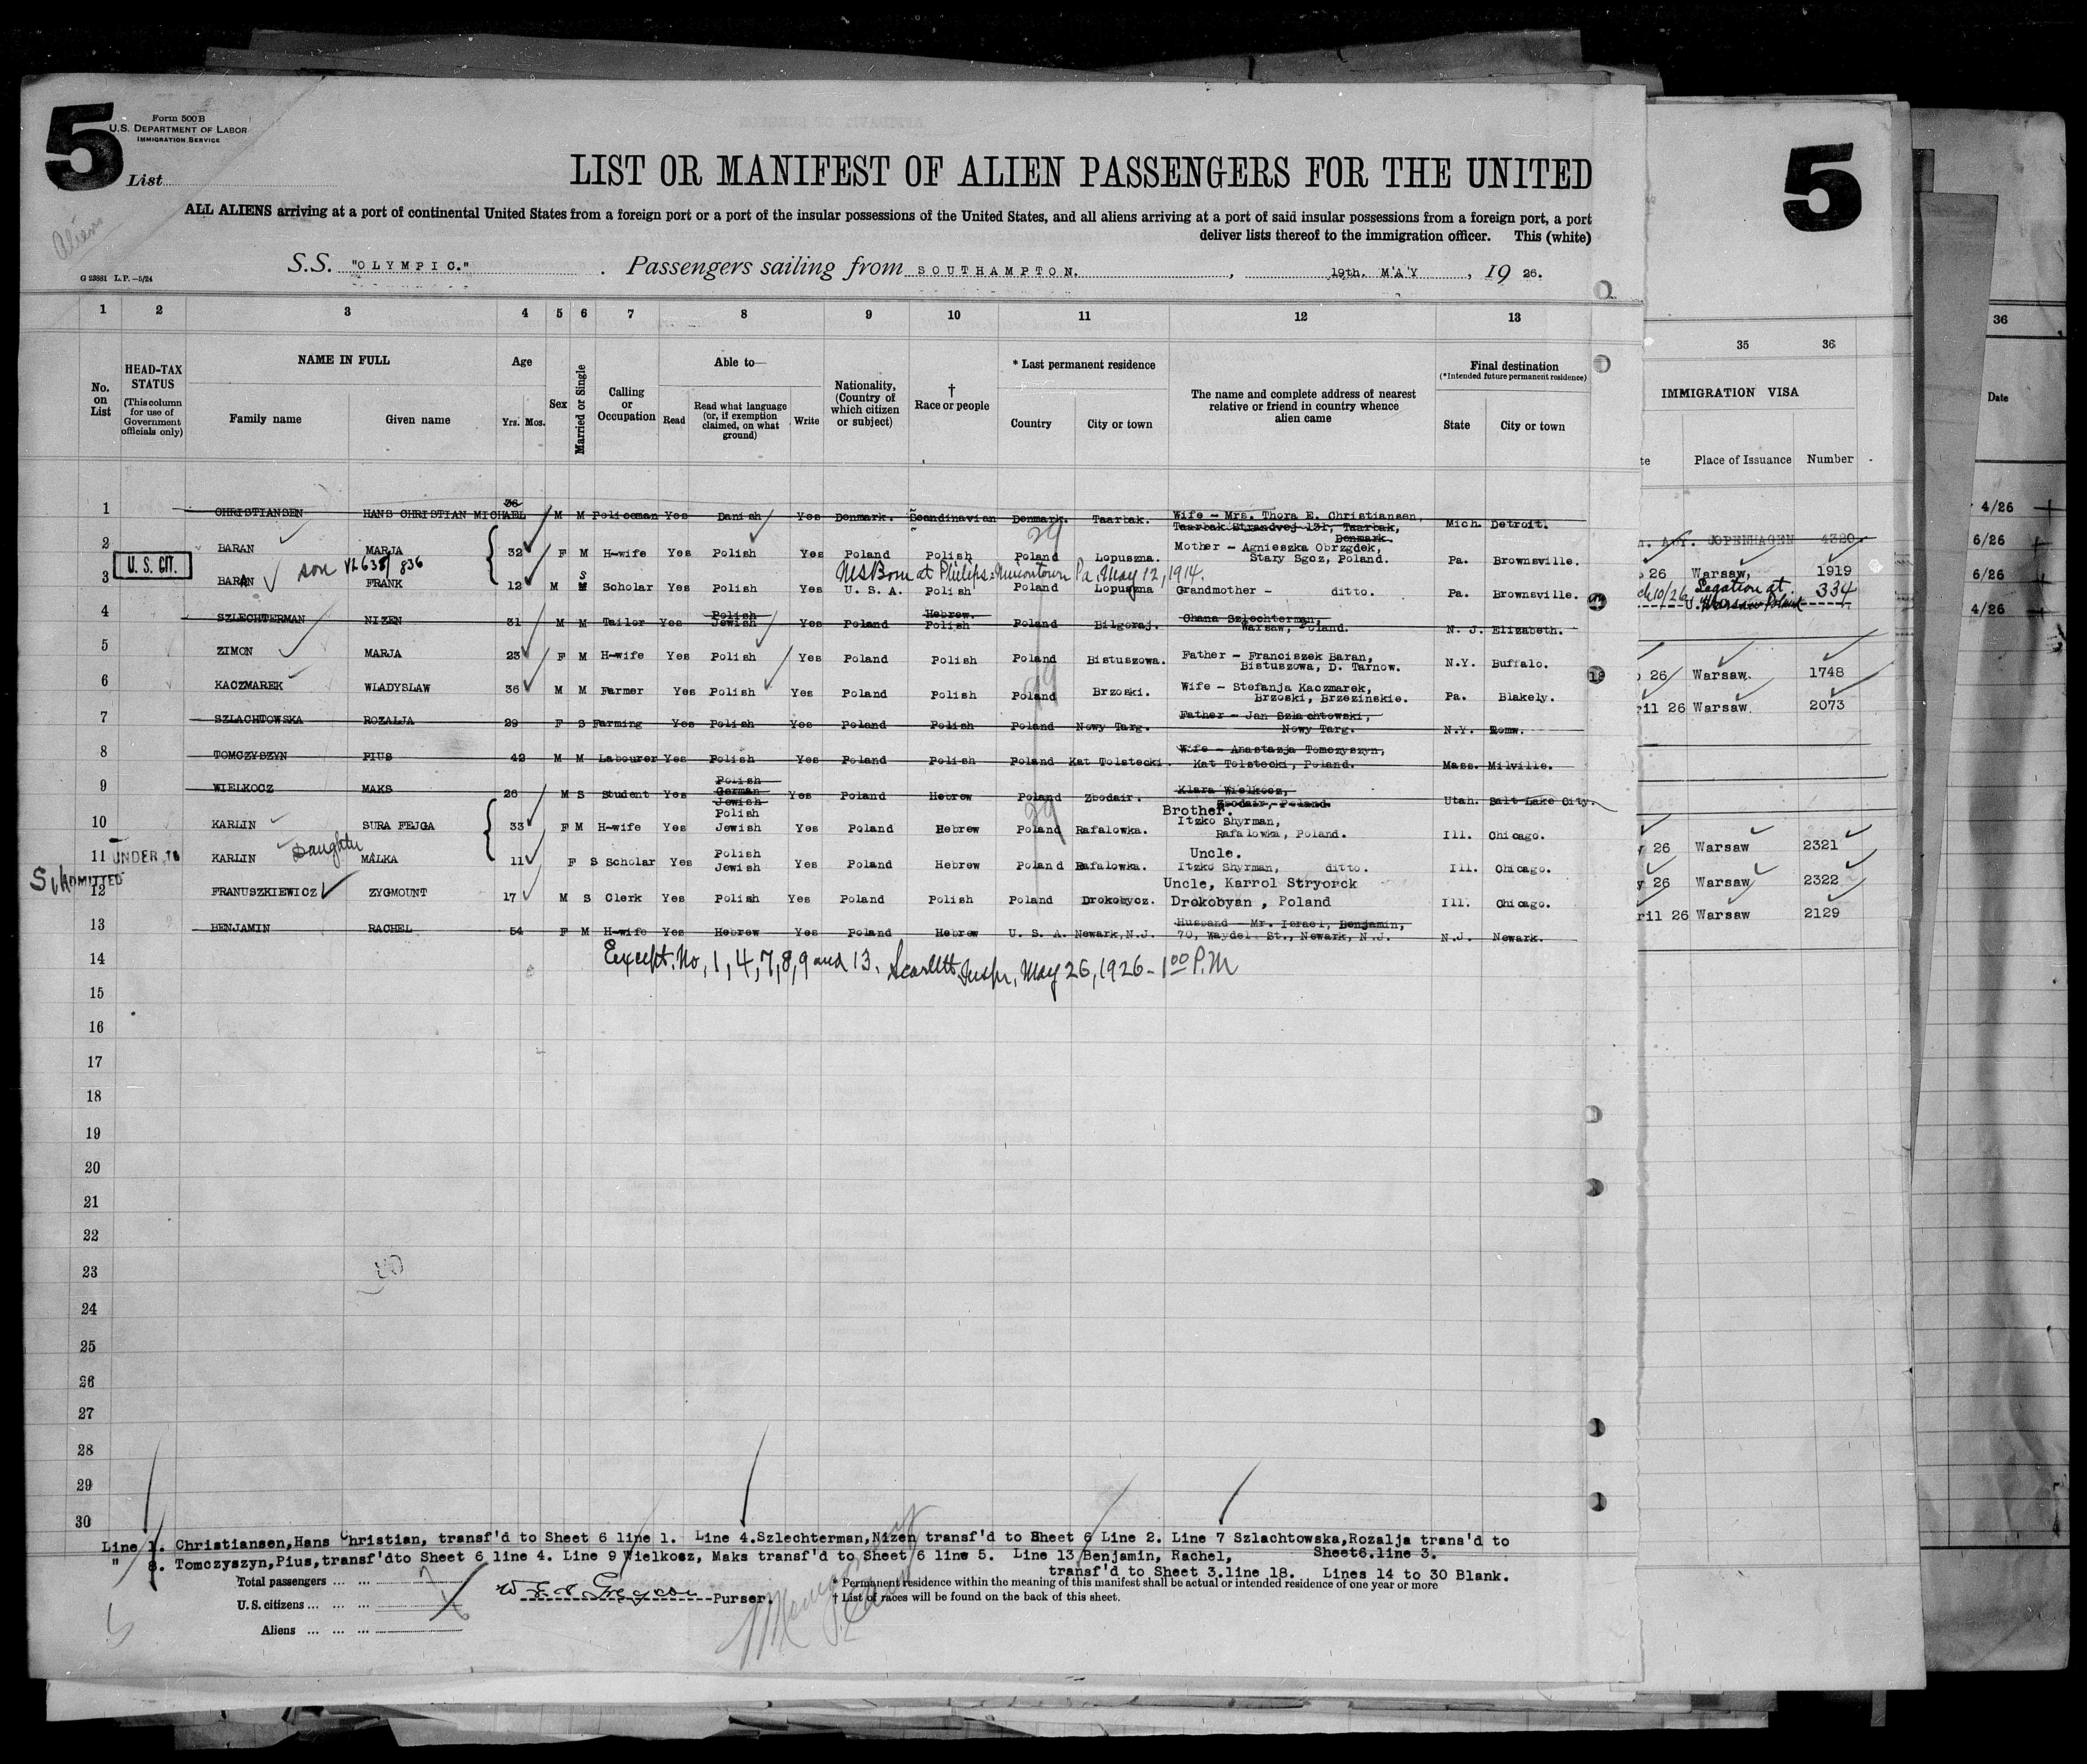 5
Form 500B
U.S. DEPARTMENT OF LABOR
IMMIGRATION SERVICE
List
Aliens
LIST OR MANIFEST OF ALIEN PASSENGERS FOR THE UNITED
ALL ALIENS arriving at a port of continental United States from a foreign port or a port of the insular possessions of the United States, and all aliens arriving at a port of said insular possessions from a foreign port, a port
deliver lists thereof to the immigration officer. This (white)
S.S. "OLYMPIC." Passengers sailing from SOUTHAMPTON, 19th. MAY, 19 26.
G 23881 L.P.—5/24
1 2 3 4 5 6 7 8 9 10 11 12 13
No. on List
HEAD-TAX STATUS (This column for use of Government officials only)
NAME IN FULL
Family name Given name
Age
Yrs. Mos.
Sex
Married or Single
Calling or Occupation
Able to—
Read
Read what language (or, if exemption claimed, on what ground)
Write
Nationality, (Country of which citizen or subject)
† Race or people
* Last permanent residence
Country City or town
The name and complete address of nearest relative or friend in country whence alien came
Final destination
(*Intended future permanent residence)
State City or town
1 CHRISTIANSEN HANS CHRISTIAN MICHAEL 36 M M Policeman Yes Danish Yes Denmark. Scandinavian Denmark. Taarbak. Wife - Mrs. Thora E. Christiansen, Taarbak Strandvej 131, Taarbak, Denmark. Mich. Detroit.
2 BARAN MARJA 32 F M H-wife Yes Polish Yes Poland Polish Poland Lopuszna. Mother - Agnieszka Obrzgdek, Stary Sgoz, Poland. Pa. Brownsville.
U. S. CIT.
son
Born at Philips Uniontown Pa, May 12, 1914.
3 BARAN FRANK 12 M M S Scholar Yes Polish Yes U. S. A. Polish Poland Lopuszna Grandmother - ditto. Pa. Brownsville.
4 SZLECHTERMAN NIZEN 31 M M Tailor Yes Polish Jewish Yes Poland Hebrew. Polish Poland Bilgoraj. Chana Szlechterman, Warsaw, Poland. N. J. Elizabeth.
5 ZIMON MARJA 23 F M H-wife Yes Polish Yes Poland Polish Poland Bistuszowa. Father - Franciszek Baran, Bistuszowa, D. Tarnow. N.Y. Buffalo.
6 KACZMAREK WLADYSLAW 36 M M Farmer Yes Polish Yes Poland Polish Poland Brzoski. Wife - Stefanja Kaczmarek, Brzoski, Brzezinskie. Pa. Blakely.
7 SZLACHTOWSKA ROZALJA 29 F S Farming Yes Polish Yes Poland Polish Poland Nowy Targ. Father - Jan Szlachtowski, Nowy Targ. N.Y. Romw.
8 TOMCZYSZYN PIUS 42 M M Labourer Yes Polish Yes Poland Polish Poland Kat Tolstecki. Wife - Anastazja Tomczyszyn, Kat Tolstecki, Poland. Mass. Milville.
9 WIELKOCZ MAKS 26 M S Student Yes Polish German Jewish Yes Poland Hebrew Poland Zbodair. Klara Wielkocz, Zbodair, Poland. Utah. Salt Lake City.
10 KARLIN SURA FEJGA 33 F M H-wife Yes Polish Jewish Yes Poland Hebrew Poland Rafalowka. Brother. Itzko Shyrman, Rafalowka, Poland. Ill. Chicago.
Daughter
11 UNDER 16 KARLIN MALKA 11 F S Scholar Yes Polish Jewish Yes Poland Hebrew Poland Rafalowka. Uncle. Itzko Shyrman, ditto. Ill. Chicago.
ADMITTED
12 FRANUSZKIEWICZ ZYGMOUNT 17 M S Clerk Yes Polish Yes Poland Polish Poland Drokobycz. Uncle, Karrol Stryorck Drokobyan, Poland Ill. Chicago.
13 BENJAMIN RACHEL 54 F M H-wife Yes Hebrew Yes Poland Hebrew U. S. A. Newark, N.J. Husband - Mr. Israel, Benjamin, 70, Waydel St., Newark, N.J. N.J. Newark.
14 Except. No, 1, 4, 7, 8, 9 and 13. Inspr, May 26, 1926 - 1 00 P.M
15
16
17
18
19
20
21
22
23
24
25
26
27
28
29
30
Line 1. Christiansen, Hans Christian, transf'd to Sheet 6 line 1. Line 4. Szlechterman, Nizen transf'd to Sheet 6 Line 2. Line 7 Szlachtowska, Rozalja trans'd to Sheet6.line 3.
" 8. Tomczyszyn, Pius, transf'dto Sheet 6 line 4. Line 9 Wielkosz, Maks transf'd to Sheet 6 line 5. Line 13 Benjamin, Rachel, transf'd to Sheet 3.line 18. Lines 14 to 30 Blank.
Total passengers
U.S. citizens
Aliens
Purser.
* Permanent residence within the meaning of this manifest shall be actual or intended residence of one year or more
† List of races will be found on the back of this sheet.
5
35 36
IMMIGRATION VISA
Place of Issuance Number
COPENHAGEN 4320
26 Warsaw, 1919
10/26 Legation at Warsaw Poland 334
26 Warsaw. 1748
ril 26 Warsaw. 2073
26 Warsaw 2321
26 Warsaw 2322
ril 26 Warsaw 2129
36
Date
4/26
6/26
6/26
4/26